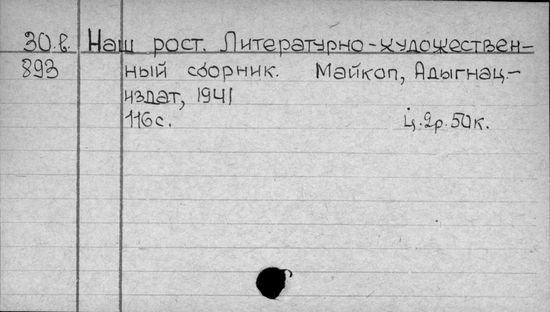 30.в. Наш рост. Литературно-художествен-
893 ный сборник. Майкоп, Адыгнац-
издат, 1941
116с. Ц. 2р. 50к.